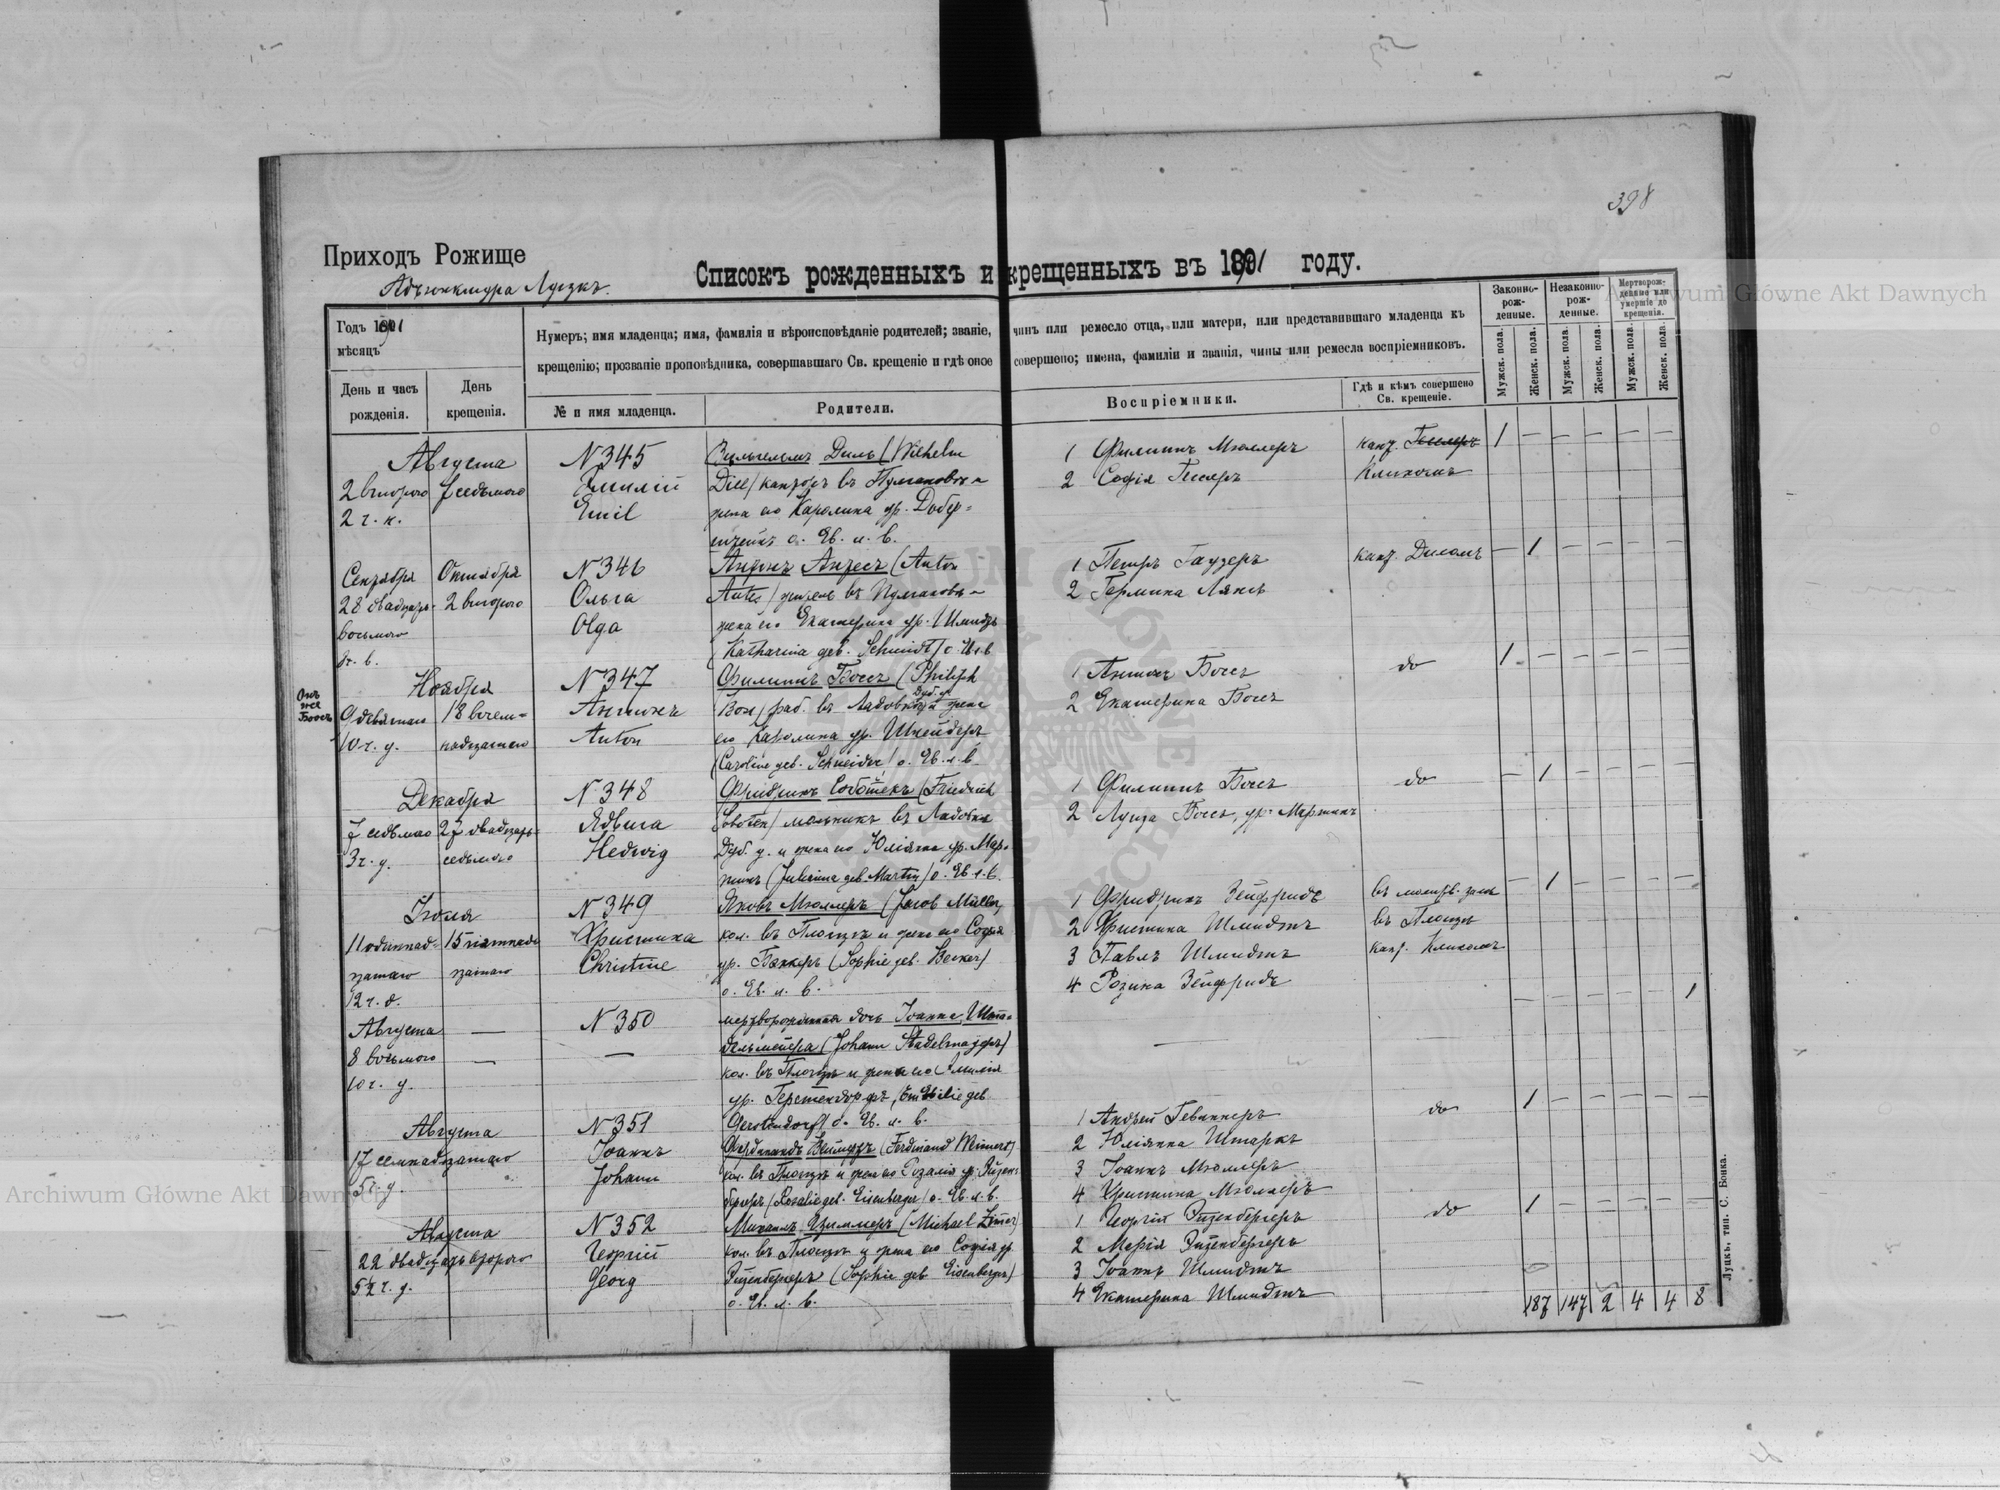 398
Приходъ Рожище
Адъюнктура Луцкъ.
Списокъ рожденныхъ и крещенныхъ въ 1891 году.
Годъ 1891
мѣсяцъ
День и часъ рожденія.
День крещенія.
Нумеръ; имя младенца; имя, фамилія и вѣроисповѣданіе родителей; званіе, чинъ или ремесло отца, или матери, или представившаго младенца къ
крещенію; прозваніе проповѣдника, совершавшаго Св. крещеніе и гдѣ оное совершено; имена, фамиліи и званія, чины или ремесла воспріемниковъ.
№ и имя младенца.
Родители.
Воспріемники.
Гдѣ и кѣмъ совершено Св. крещеніе.
Законно-рож-денные.
Незаконно-рож-денные.
Мертворож-денные или умершіе до крещенія.
Мужск. пола.
Женск. пола.
Мужск. пола.
Женск. пола.
Мужск. пола.
Женск. пола.
Августа
2 второго
7 седьмого
2 ч. н.
N 345
Эмилій
Emil
Вильгельмъ Диль (Wilhelm
Diel) канторъ въ
жена его Каролина ур.
о. Ев. л. в.
1 Филиппъ Мюллеръ
2 Софія
кант.
Кликомъ
1 — — — — —
Сентября
28 двадцать
восьмого
Октября
2 второго
N 346
Ольга
Olga
Антонъ Антесъ (Anton
Antes) житель въ
жена его Екатерина ур. Шмидтъ
(Katharina geb. Schmidt) о. Ев. л. в.
1 Петръ Гаузеръ
2 Гермина
кант. Дилемъ
— 1 — — — —
Онъ
же
Боссъ
Ноября
9 девятаго
10 ч. у.
18 восем=
надцатаго
N 347
Антонъ
Anton
Филиппъ Боссъ (Philipp
Boss) раб. въ Ладовкѣ Дуб. у. и жена
его Каролина ур. Шнейдеръ
(Caroline geb. Schneider) о. Ев. л. в.
1 Антонъ Боссъ
2 Екатерина Боссъ
do
1 — — — — —
Декабря
7 седьмаго
3 ч. у.
27 двадцать
седьмого
N 348
Ядвига
Hedwig
Фридрихъ Соботекъ (Friedrich
Sobotek) мельникъ въ Ладовкѣ
Дуб. у. и жена его Юліяна ур. Мар=
тинъ (Julianna geb. Martin) о. Ев. л. в.
1 Филиппъ Боссъ
2 Луиза Боссъ, ур. Мартинъ
do
— 1 — — — —
Іюля
11 одиннад=
цатаго
12 ч. д.
15 пятнад=
цатаго
N 349
Христина
Christine
Яковъ Мюллеръ (Jacob Müller)
кол. въ Плоцкѣ и жена его Софія
ур. Беккеръ (Sophie geb. Becker)
о. Ев. л. в.
1 Фридрихъ Зейфридъ
2 Христина Шмидтъ
3 Павлъ Шмидтъ
4 Розина Зейфридъ
въ молитв. залѣ
въ Плоцкѣ
кант. Кликомъ
— 1 — — — —
Августа
8 восьмого
10 ч. у.
—
—
N 350
—
мертворожденная дочь Іоанна Шта=
дельмейера (Johann Stadelmajer)
кол. въ Плоцкѣ и жены его Эмилія
ур. Герстендорфъ, (Emilie geb.
Gerstendorf) о. Ев. л. в.
—
— — — — — 1
Августа
17 семнадцатаго
5 ч. у.
N 351
Іоаннъ
Johann
Фердинандъ Веймертъ (Ferdinand Weimert)
кол. въ Плоцкѣ и жена его Розалія ур. Эйзен=
бергеръ (Rosalie geb. Eisenberger) о. Ев. л. в.
1 Андрей
2 Юліянна Штаркъ
3 Іоаннъ Мюллеръ
4 Христина Мюллеръ
do
1 — — — — —
Августа
22 двадцать второго
5½ ч. у.
N 352
Георгій
Georg
Михаилъ Циммеръ (Michael Zimer)
кол. въ Плоцкѣ и жена его Софія ур.
Эйзенбергеръ (Sophie geb Eisenberger)
о. Ев. л. в.
1 Георгій Эйзенбергеръ
2 Марія Эйзенбергеръ
3 Іоаннъ Шмидтъ
4 Екатерина Шмидтъ
do
1 — — — — —
187 147 2 4 4 8
Луцкъ, тип. С. Бонка.
Archiwum Główne Akt Dawnych
Archiwum Główne Akt Dawnych